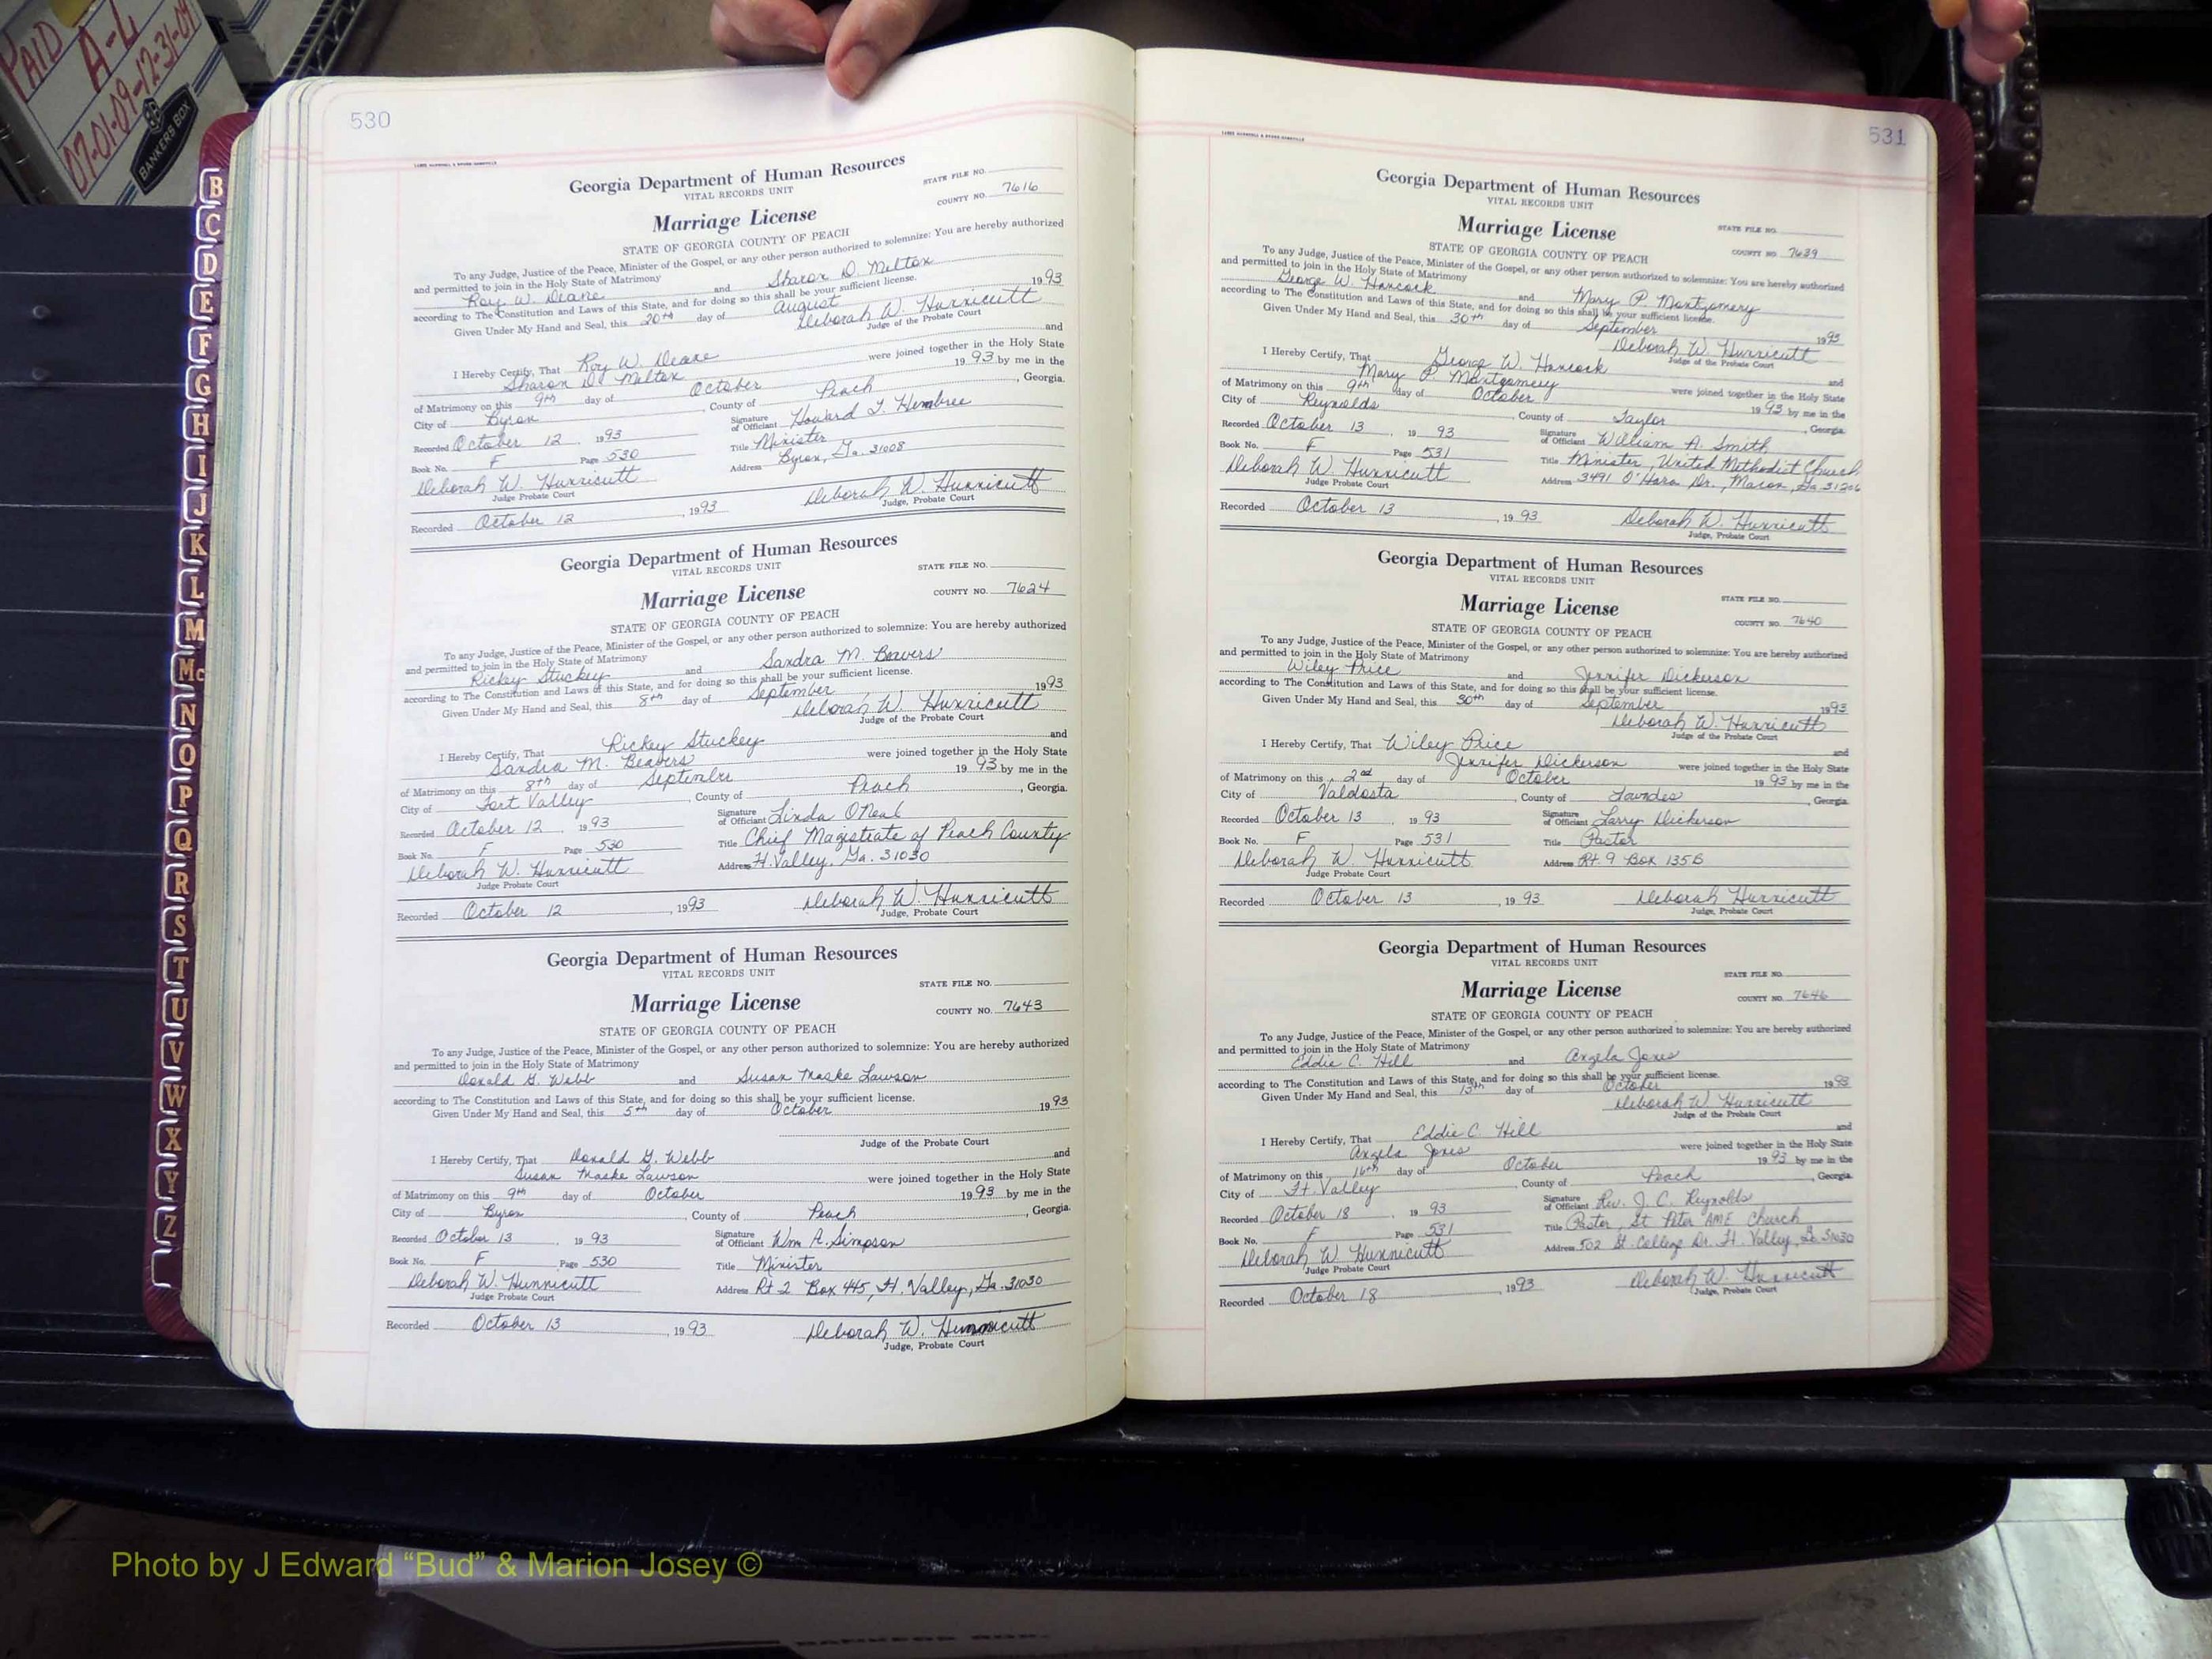 PAID
A-L
07-01-09-12-31-09
BANKERS BOX
B
C
D
E
F
G
H
I
J
K
L
M
Mc
N
O
P
Q
R
S
T
U
V
W
X
Y
Z
530
Georgia Department of Human Resources
VITAL RECORDS UNIT
STATE FILE NO.
COUNTY NO. 7616
Marriage License
STATE OF GEORGIA COUNTY OF PEACH
To any Judge, Justice of the Peace, Minister of the Gospel, or any other person authorized to solemnize: You are hereby authorized
and permitted to join in the Holy State of Matrimony
Roy W. Deane and Sharon D. Melton
according to The Constitution and Laws of this State, and for doing so this shall be your sufficient license.
Given Under My Hand and Seal, this 20th day of August 1993
Deborah W. Hunnicutt
Judge of the Probate Court
I Hereby Certify, That Roy W. Deane and
Sharon D. Melton were joined together in the Holy State
of Matrimony on this 9th day of October 1993 by me in the
City of Byron, County of Peach, Georgia.
Recorded October 12, 1993 Signature of Officiant Howard T. Hembree
Book No. F Page 530 Title Minister
Deborah W. Hunnicutt Address Byron, Ga. 31008
Judge Probate Court
Recorded October 12, 1993 Deborah W. Hunnicutt
Judge, Probate Court
Georgia Department of Human Resources
VITAL RECORDS UNIT
STATE FILE NO.
COUNTY NO. 7624
Marriage License
STATE OF GEORGIA COUNTY OF PEACH
To any Judge, Justice of the Peace, Minister of the Gospel, or any other person authorized to solemnize: You are hereby authorized
and permitted to join in the Holy State of Matrimony
Rickey Stuckey and Sandra M. Beavers
according to The Constitution and Laws of this State, and for doing so this shall be your sufficient license.
Given Under My Hand and Seal, this 8th day of September 1993
Deborah W. Hunnicutt
Judge of the Probate Court
I Hereby Certify, That Rickey Stuckey and
Sandra M. Beavers were joined together in the Holy State
of Matrimony on this 8th day of September 1993 by me in the
City of Fort Valley, County of Peach, Georgia.
Recorded October 12, 1993 Signature of Officiant Linda O'Neal
Book No. F Page 530 Title Chief Magistrate of Peach County
Deborah W. Hunnicutt Address Ft. Valley, Ga. 31030
Judge Probate Court
Recorded October 12, 1993 Deborah W. Hunnicutt
Judge, Probate Court
Georgia Department of Human Resources
VITAL RECORDS UNIT
STATE FILE NO.
COUNTY NO. 7643
Marriage License
STATE OF GEORGIA COUNTY OF PEACH
To any Judge, Justice of the Peace, Minister of the Gospel, or any other person authorized to solemnize: You are hereby authorized
and permitted to join in the Holy State of Matrimony
Donald G. Webb and Susan Maske Lawson
according to The Constitution and Laws of this State, and for doing so this shall be your sufficient license.
Given Under My Hand and Seal, this 5th day of October 1993
Judge of the Probate Court
I Hereby Certify, That Donald G. Webb and
Susan Maske Lawson were joined together in the Holy State
of Matrimony on this 9th day of October 1993 by me in the
City of Byron, County of Peach, Georgia.
Recorded October 13, 1993 Signature of Officiant Wm A. Simpson
Book No. F Page 530 Title Minister
Deborah W. Hunnicutt Address Rt 2 Box 445, Ft. Valley, Ga. 31030
Judge Probate Court
Recorded October 13, 1993 Deborah W. Hunnicutt
Judge, Probate Court
531
Georgia Department of Human Resources
VITAL RECORDS UNIT
Marriage License
STATE FILE NO.
STATE OF GEORGIA COUNTY OF PEACH
COUNTY NO. 7639
To any Judge, Justice of the Peace, Minister of the Gospel, or any other person authorized to solemnize: You are hereby authorized
and permitted to join in the Holy State of Matrimony
George W. Hancock and Mary P. Montgomery
according to The Constitution and Laws of this State, and for doing so this shall be your sufficient license.
Given Under My Hand and Seal, this 30th day of September 1993
Deborah W. Hunnicutt
Judge of the Probate Court
I Hereby Certify, That George W. Hancock and
Mary P. Montgomery were joined together in the Holy State
of Matrimony on this 9th day of October 1993 by me in the
City of Reynolds, County of Taylor, Georgia.
Recorded October 13, 1993 Signature of Officiant William A. Smith
Book No. F Page 531 Title Minister, United Methodist Church
Deborah W. Hunnicutt Address 3491 O'Hara Dr., Macon, Ga 31206
Judge Probate Court
Recorded October 13, 1993 Deborah W. Hunnicutt
Judge, Probate Court
Georgia Department of Human Resources
VITAL RECORDS UNIT
Marriage License
STATE FILE NO.
STATE OF GEORGIA COUNTY OF PEACH
COUNTY NO. 7640
To any Judge, Justice of the Peace, Minister of the Gospel, or any other person authorized to solemnize: You are hereby authorized
and permitted to join in the Holy State of Matrimony
Wiley Price and Jennifer Dickerson
according to The Constitution and Laws of this State, and for doing so this shall be your sufficient license.
Given Under My Hand and Seal, this 30th day of September 1993
Deborah W. Hunnicutt
Judge of the Probate Court
I Hereby Certify, That Wiley Price and
Jennifer Dickerson were joined together in the Holy State
of Matrimony on this 2nd day of October 1993 by me in the
City of Valdosta, County of Lowndes, Georgia.
Recorded October 13, 1993 Signature of Officiant Larry Dickerson
Book No. F Page 531 Title Pastor
Deborah W. Hunnicutt Address Rt. 9 Box 135B
Judge Probate Court
Recorded October 13, 1993 Deborah Hunnicutt
Judge, Probate Court
Georgia Department of Human Resources
VITAL RECORDS UNIT
STATE FILE NO.
Marriage License
COUNTY NO. 7646
STATE OF GEORGIA COUNTY OF PEACH
To any Judge, Justice of the Peace, Minister of the Gospel, or any other person authorized to solemnize: You are hereby authorized
and permitted to join in the Holy State of Matrimony
Eddie C. Hill and Angela Jones
according to The Constitution and Laws of this State, and for doing so this shall be your sufficient license.
Given Under My Hand and Seal, this 13th day of October 1993
Deborah W. Hunnicutt
Judge of the Probate Court
I Hereby Certify, That Eddie C. Hill and
Angela Jones were joined together in the Holy State
of Matrimony on this 16th day of October 1993 by me in the
City of Ft. Valley, County of Peach, Georgia.
Recorded October 18, 1993 Signature of Officiant Rev. J. C. Reynolds
Book No. F Page 531 Title Pastor, St Peter AME Church
Deborah W. Hunnicutt Address 502 St. College Dr. Ft. Valley, Ga 31030
Judge Probate Court
Recorded October 18, 1993 Deborah W. Hunnicutt
Judge, Probate Court
Photo by J Edward “Bud” & Marion Josey ©